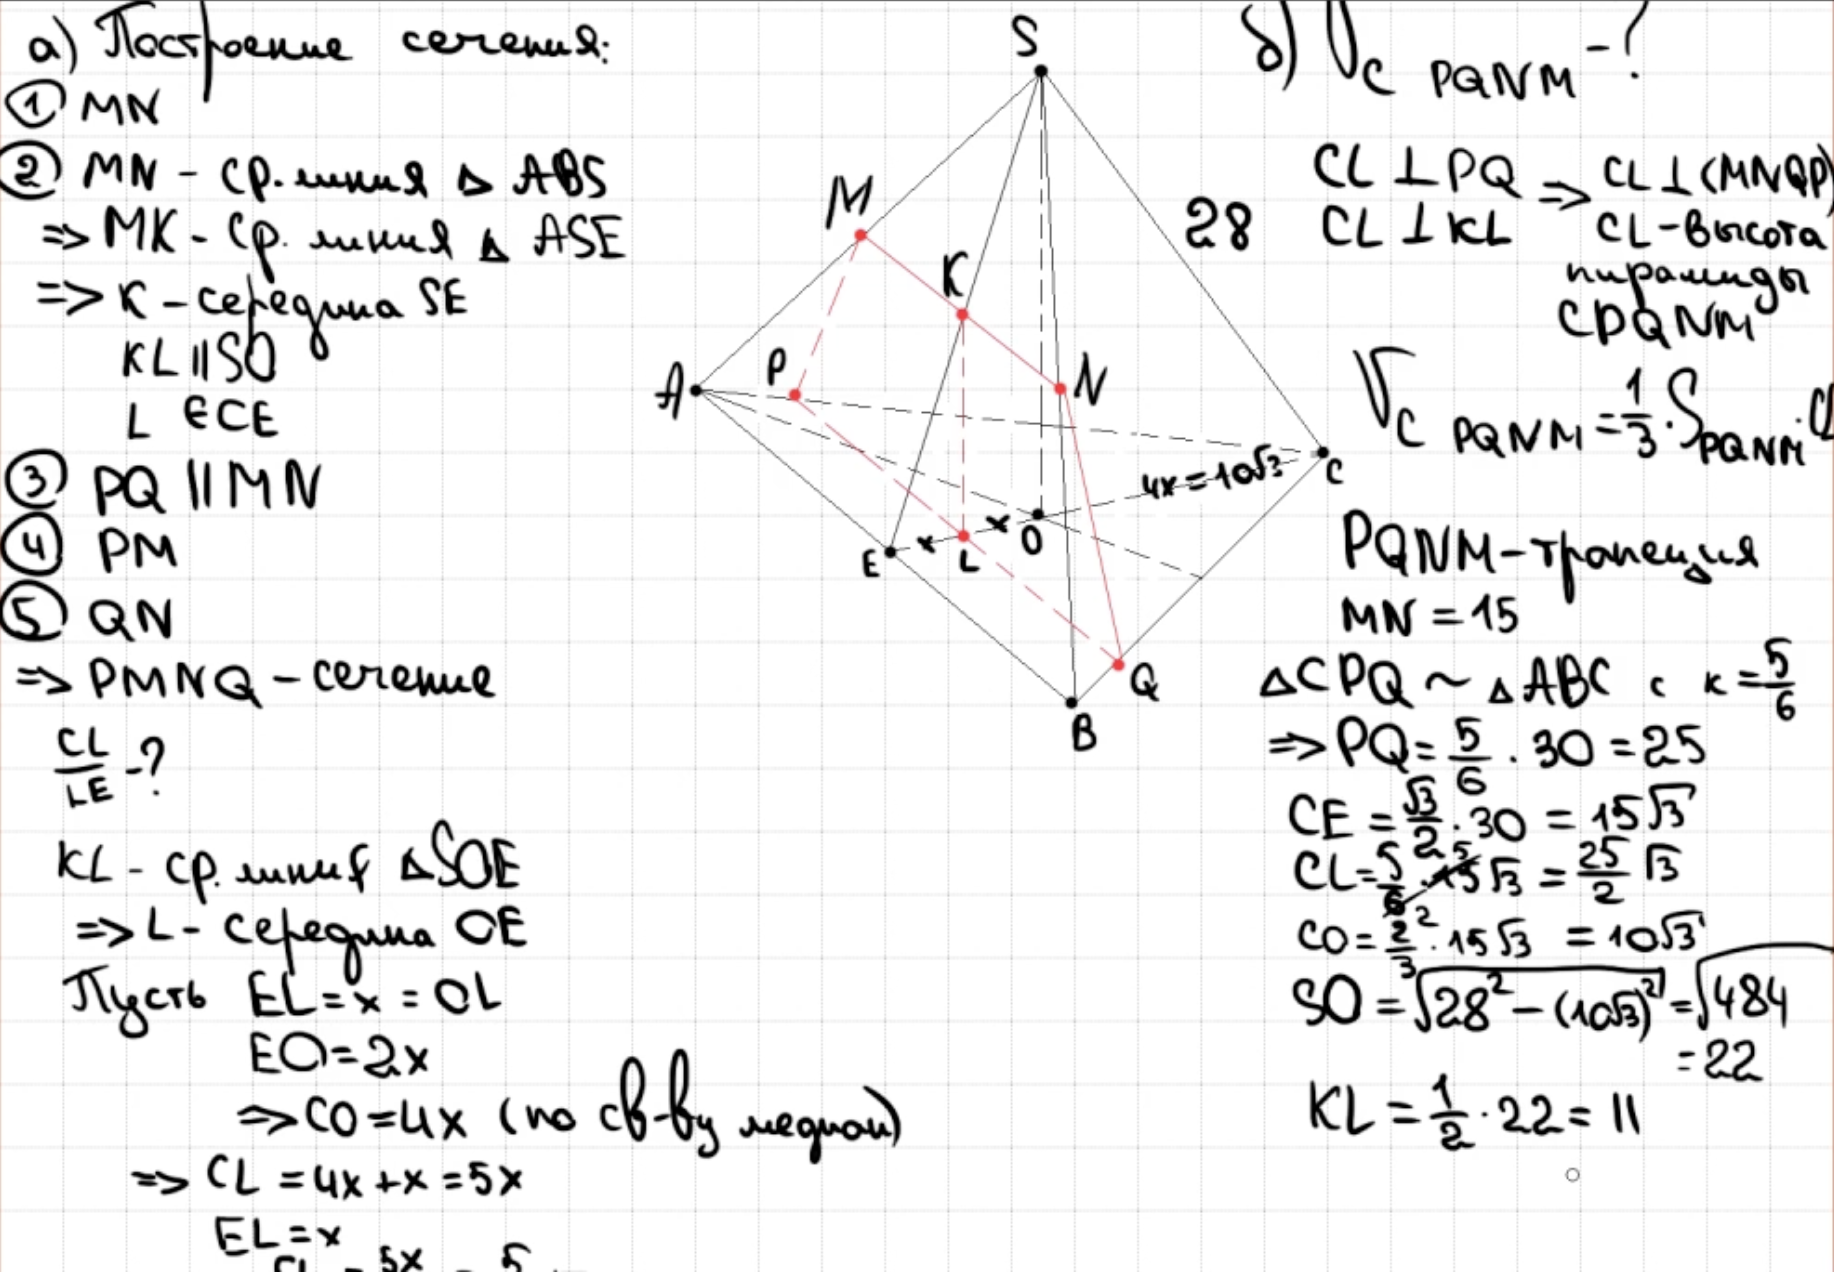 а) Построение сечения:
① MN
② MN - ср. линия △ ABS
=> MK - ср. линия △ ASE
=> K - середина SE
KL || SO
L ∈ CE
③ PQ || MN
④ PM
⑤ QN
=> PMNQ - сечение
CL/LE - ?
KL - ср. линия △SOE
=> L - середина OE
Пусть EL = x = OL
EO = 2x
=> CO = 4x (по св-ву медиан)
=> CL = 4x + x = 5x
EL = x
S
M
K
28
A
P
N
4x = 10√3
C
x
x
O
E
L
Q
B
б) V C PQNM - ?
CL ⊥ PQ => CL ⊥ (MNQP)
CL ⊥ KL CL - высота
пирамиды
CPQNM
V C PQNM = 1/3 · S PQNM · CL
PQNM - трапеция
MN = 15
△CPQ ~ △ABC с к = 5/6
=> PQ = 5/6 · 30 = 25
CE = √3/2 · 30 = 15√3
CL = 5/6 · 15√3 = 25/2 √3
CO = 2/3 · 15√3 = 10√3
SO = √28² - (10√3)² = √484
= 22
KL = 1/2 · 22 = 11